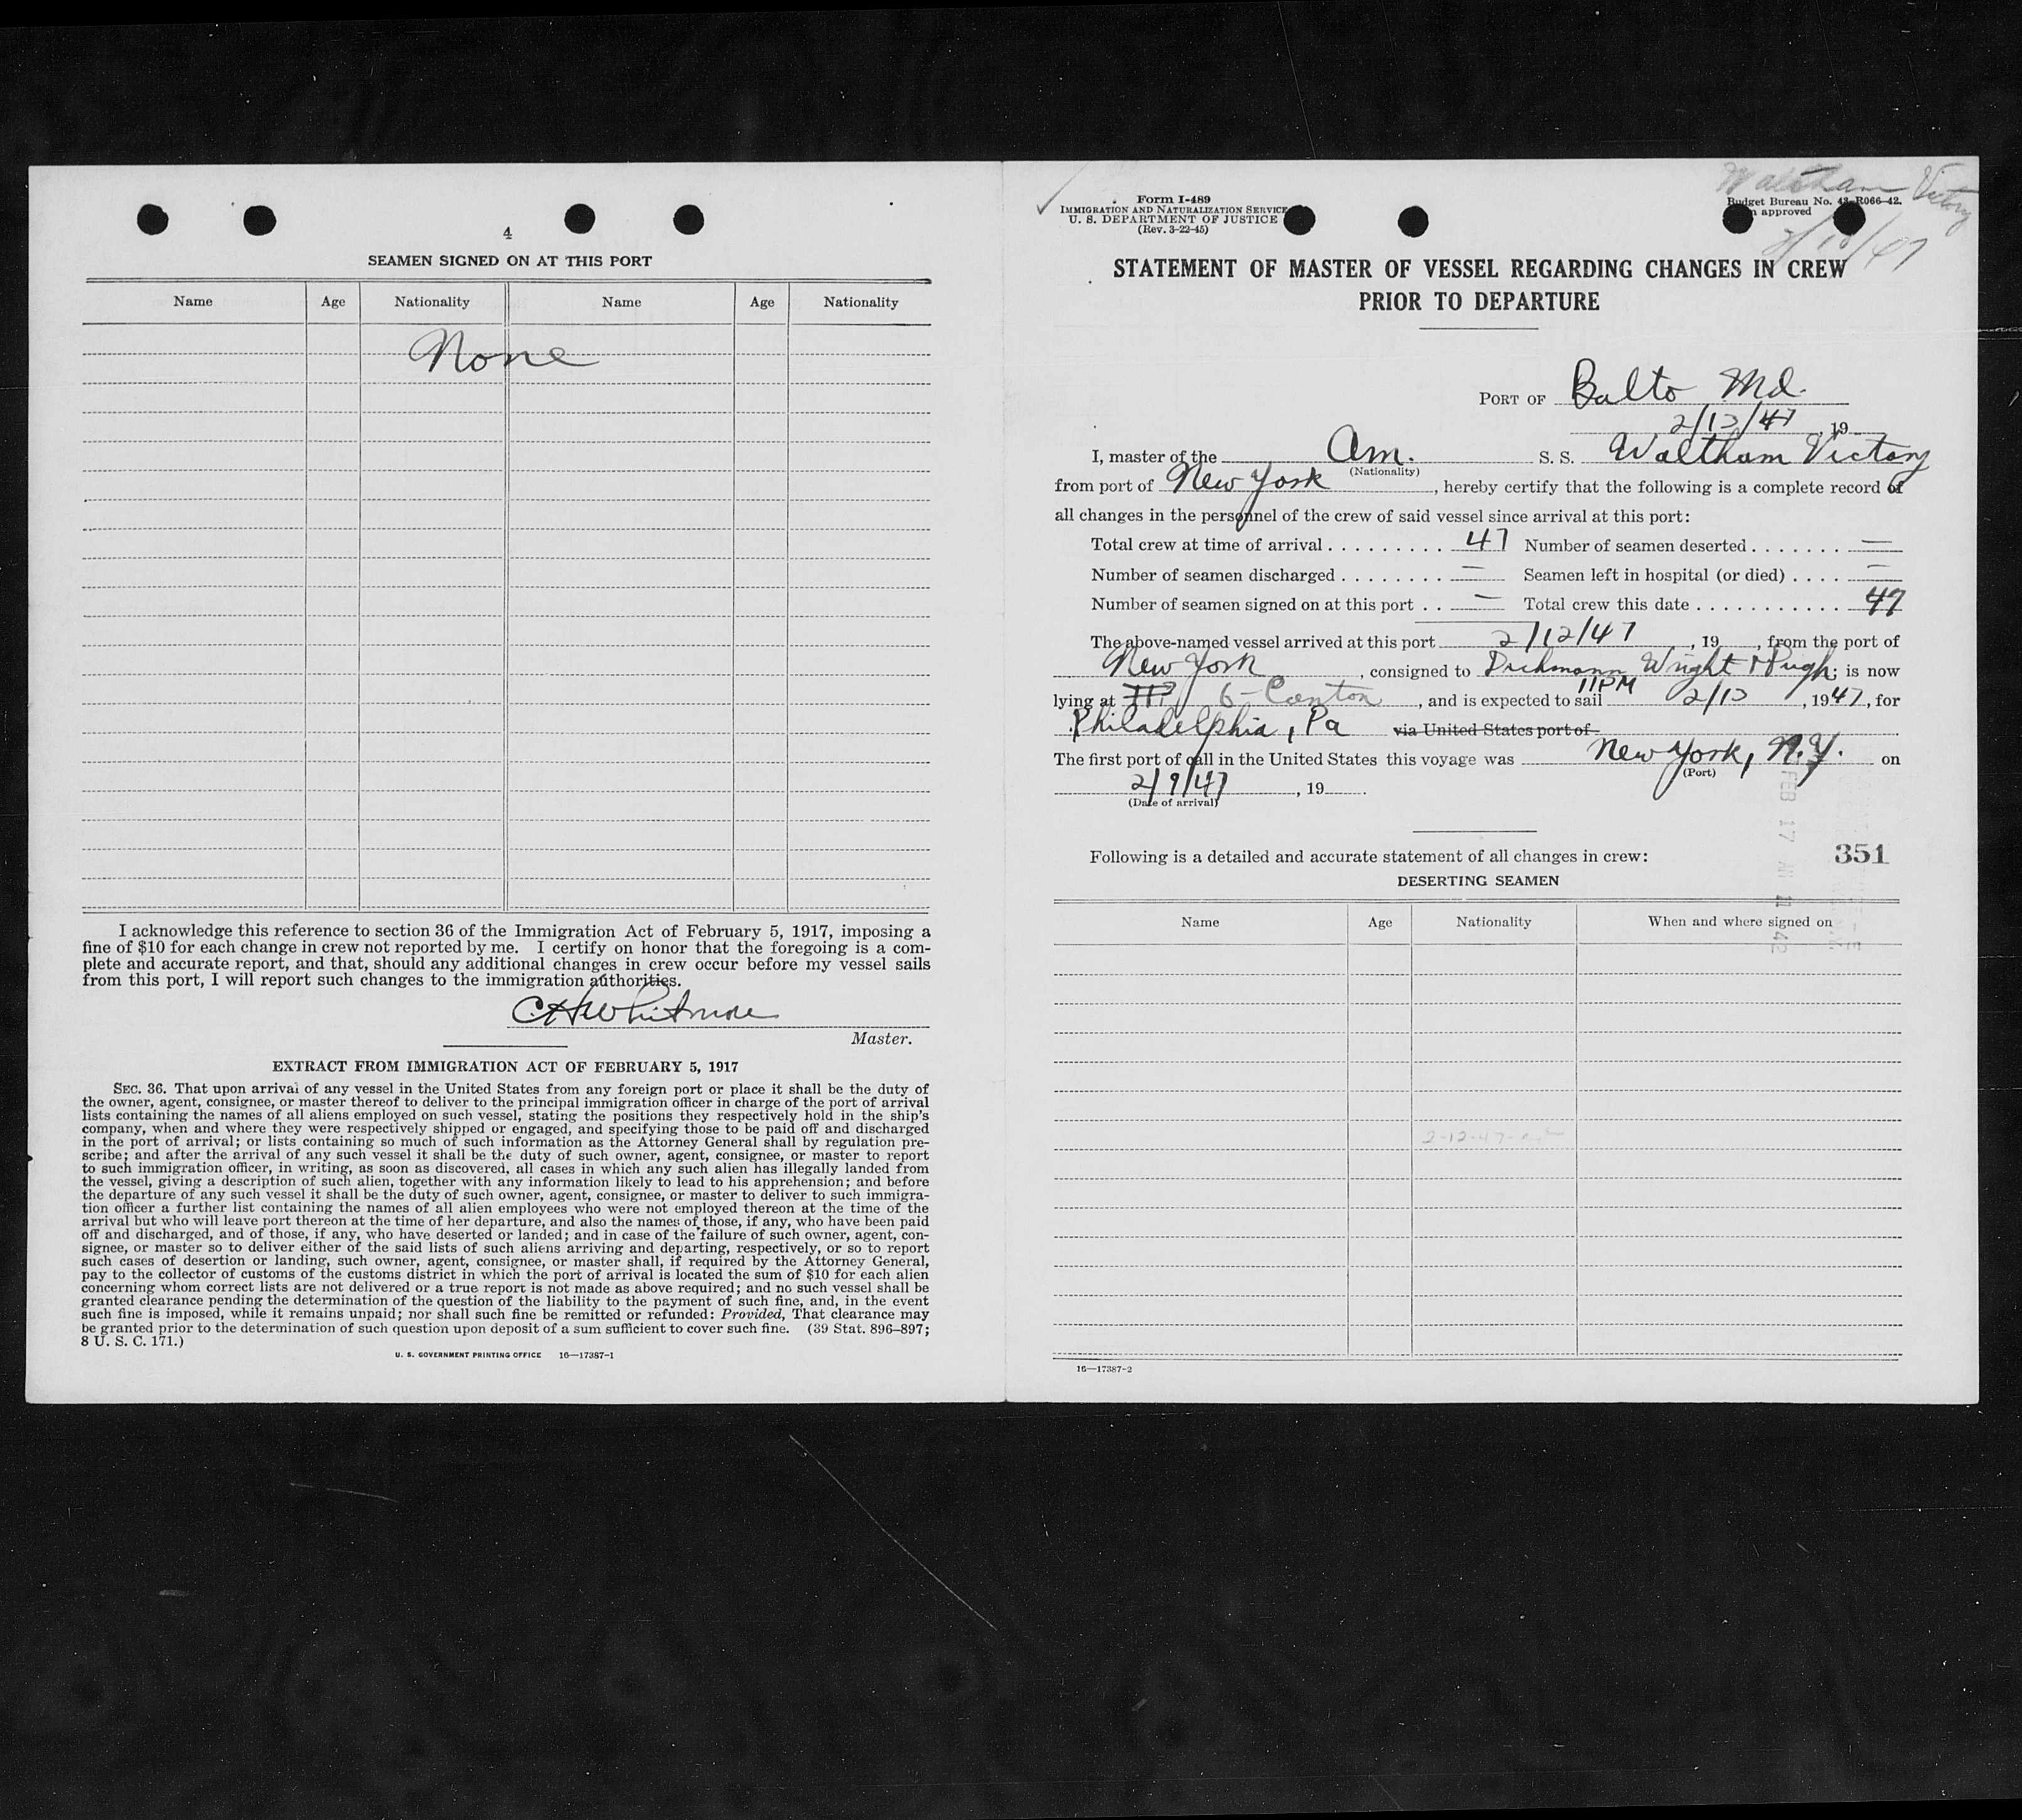 4
SEAMEN SIGNED ON AT THIS PORT
Name Age Nationality Name Age Nationality
None
I acknowledge this reference to section 36 of the Immigration Act of February 5, 1917, imposing a
fine of $10 for each change in crew not reported by me. I certify on honor that the foregoing is a com-
plete and accurate report, and that, should any additional changes in crew occur before my vessel sails
from this port, I will report such changes to the immigration authorities.
CH Whitmore
Master.
EXTRACT FROM IMMIGRATION ACT OF FEBRUARY 5, 1917
SEC. 36. That upon arrival of any vessel in the United States from any foreign port or place it shall be the duty of
the owner, agent, consignee, or master thereof to deliver to the principal immigration officer in charge of the port of arrival
lists containing the names of all aliens employed on such vessel, stating the positions they respectively hold in the ship's
company, when and where they were respectively shipped or engaged, and specifying those to be paid off and discharged
in the port of arrival; or lists containing so much of such information as the Attorney General shall by regulation pre-
scribe; and after the arrival of any such vessel it shall be the duty of such owner, agent, consignee, or master to report
to such immigration officer, in writing, as soon as discovered, all cases in which any such alien has illegally landed from
the vessel, giving a description of such alien, together with any information likely to lead to his apprehension; and before
the departure of any such vessel it shall be the duty of such owner, agent, consignee, or master to deliver to such immigra-
tion officer a further list containing the names of all alien employees who were not employed thereon at the time of the
arrival but who will leave port thereon at the time of her departure, and also the names of those, if any, who have been paid
off and discharged, and of those, if any, who have deserted or landed; and in case of the failure of such owner, agent, con-
signee, or master so to deliver either of the said lists of such aliens arriving and departing, respectively, or so to report
such cases of desertion or landing, such owner, agent, consignee, or master shall, if required by the Attorney General,
pay to the collector of customs of the customs district in which the port of arrival is located the sum of $10 for each alien
concerning whom correct lists are not delivered or a true report is not made as above required; and no such vessel shall be
granted clearance pending the determination of the question of the liability to the payment of such fine, and, in the event
such fine is imposed, while it remains unpaid; nor shall such fine be remitted or refunded: Provided, That clearance may
be granted prior to the determination of such question upon deposit of a sum sufficient to cover such fine. (39 Stat. 896-897;
8 U. S. C. 171.)
U. S. GOVERNMENT PRINTING OFFICE 16—17387-1
Waltham Victory
Form I-489
IMMIGRATION AND NATURALIZATION SERVICE
U. S. DEPARTMENT OF JUSTICE
(Rev. 3-22-45)
Budget Bureau No. 43-R066-42.
approved
STATEMENT OF MASTER OF VESSEL REGARDING CHANGES IN CREW
PRIOR TO DEPARTURE
PORT OF Balto Md.
2/13/47, 19
I, master of the Am. S. S. Waltham Victory
(Nationality)
from port of New York, hereby certify that the following is a complete record of
all changes in the personnel of the crew of said vessel since arrival at this port:
Total crew at time of arrival 47 Number of seamen deserted —
Number of seamen discharged — Seamen left in hospital (or died) —
Number of seamen signed on at this port — Total crew this date 47
The above-named vessel arrived at this port 2/12/47, 19, from the port of
New York, consigned to Dichmann Wright & Pugh; is now
lying at 6-Canton, and is expected to sail 11PM 2/13, 1947, for
Philadelphia, Pa via United States port of
The first port of call in the United States this voyage was New York, N.Y. on
(Port)
2/9/47, 19.
(Date of arrival)
FEB 17 11 42
Following is a detailed and accurate statement of all changes in crew: 351
DESERTING SEAMEN
Name Age Nationality When and where signed on
2-12-47
16—17387-2